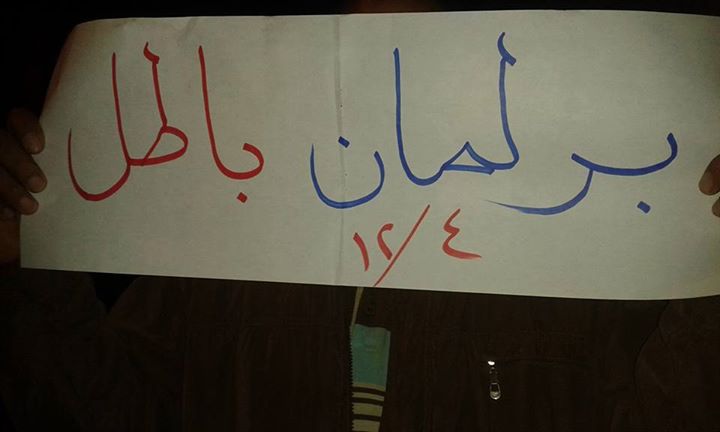 برلمان باطل
٤/١٢